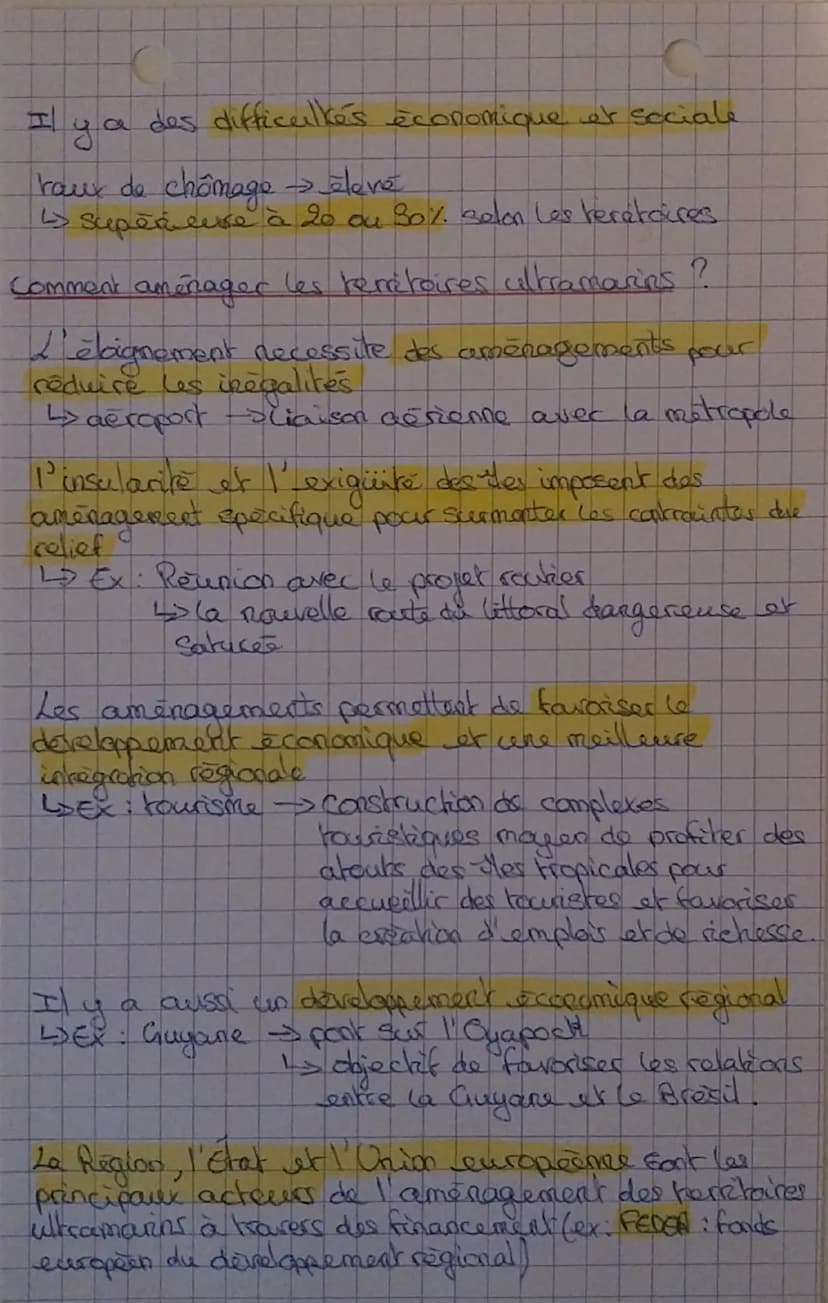 Il y a des difficultés économique et sociale
taux de chômage → élevé
↳ supérieuse à 20 ou 30% selon les teratoires
Comment aménager les territoires ultramarins ?
L'éloignement necessite des aménagements pour
réduire les inégalités
↳ aéroport → liaison aérienne avec la métropole
l'insularité et l'exigüité des îles imposent des
aménagement spécifique pour surmonter les contraintes du
relief
↳ Ex : Réunion avec le projet routier
↳ la nouvelle route du littoral dangereuse et
saturée
Les aménagements permettent de favoriser le
développement économique et une meilleure
intégration régionale
↳ Ex : tourisme → construction de complexes
touristiques moyen de profiter des
atouts des îles tropicales pour
accueillir des touristes et favoriser
la création d'emplois et de richesse.
Il y a aussi un développement économique régional
↳ Ex : Guyane → pont sur l'Oyapock
↳ objectif de favoriser les relations
entre la Guyane et le Brésil.
La Région, l'État et l'Union européenne sont les
principaux acteurs de l'aménagement des territoires
ultramarins à travers des financement (ex: FEDER : fonds
européen du développement régional)